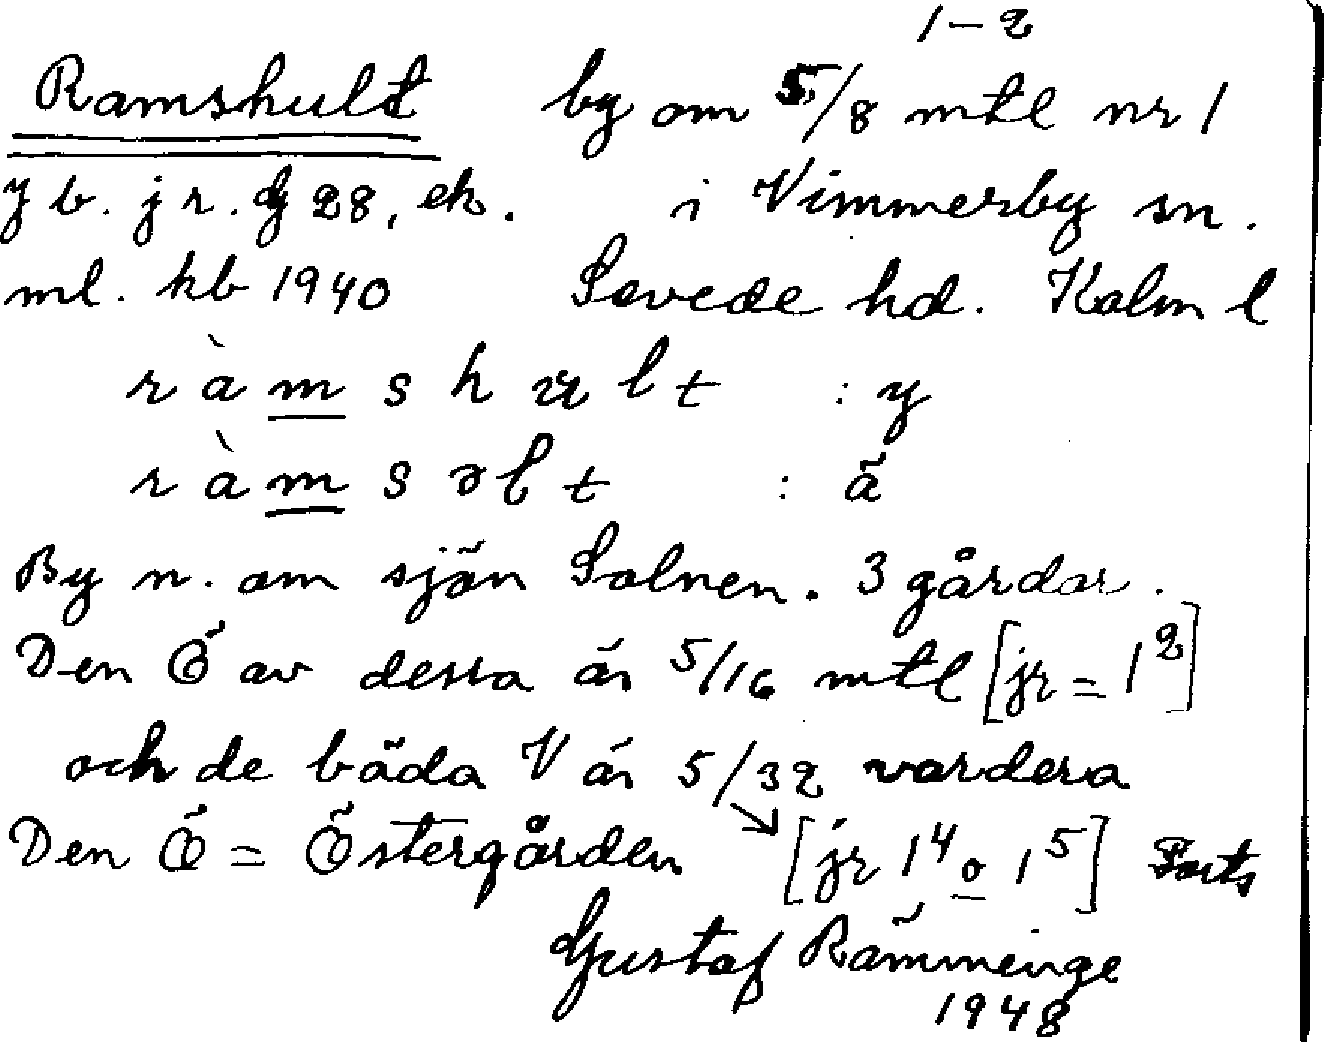 1–2
Ramshult by om 5/8 mtl nr 1
jb. jr. dg 28, ek. i Vimmerby sn.
ml. kb 1940 Sevede hd. Kalm l
ràmshult : y
ràmsəlt : ä
By n. om sjön Solnen. 3 gårdar.
Den Ö av dessa är 5/16 mtl [jr = 1²]
och de båda V är 5/32 vardera
Den Ö = Östergården → [jr 1⁴ o 1⁵] Forts
Gustaf Rämminge
1948